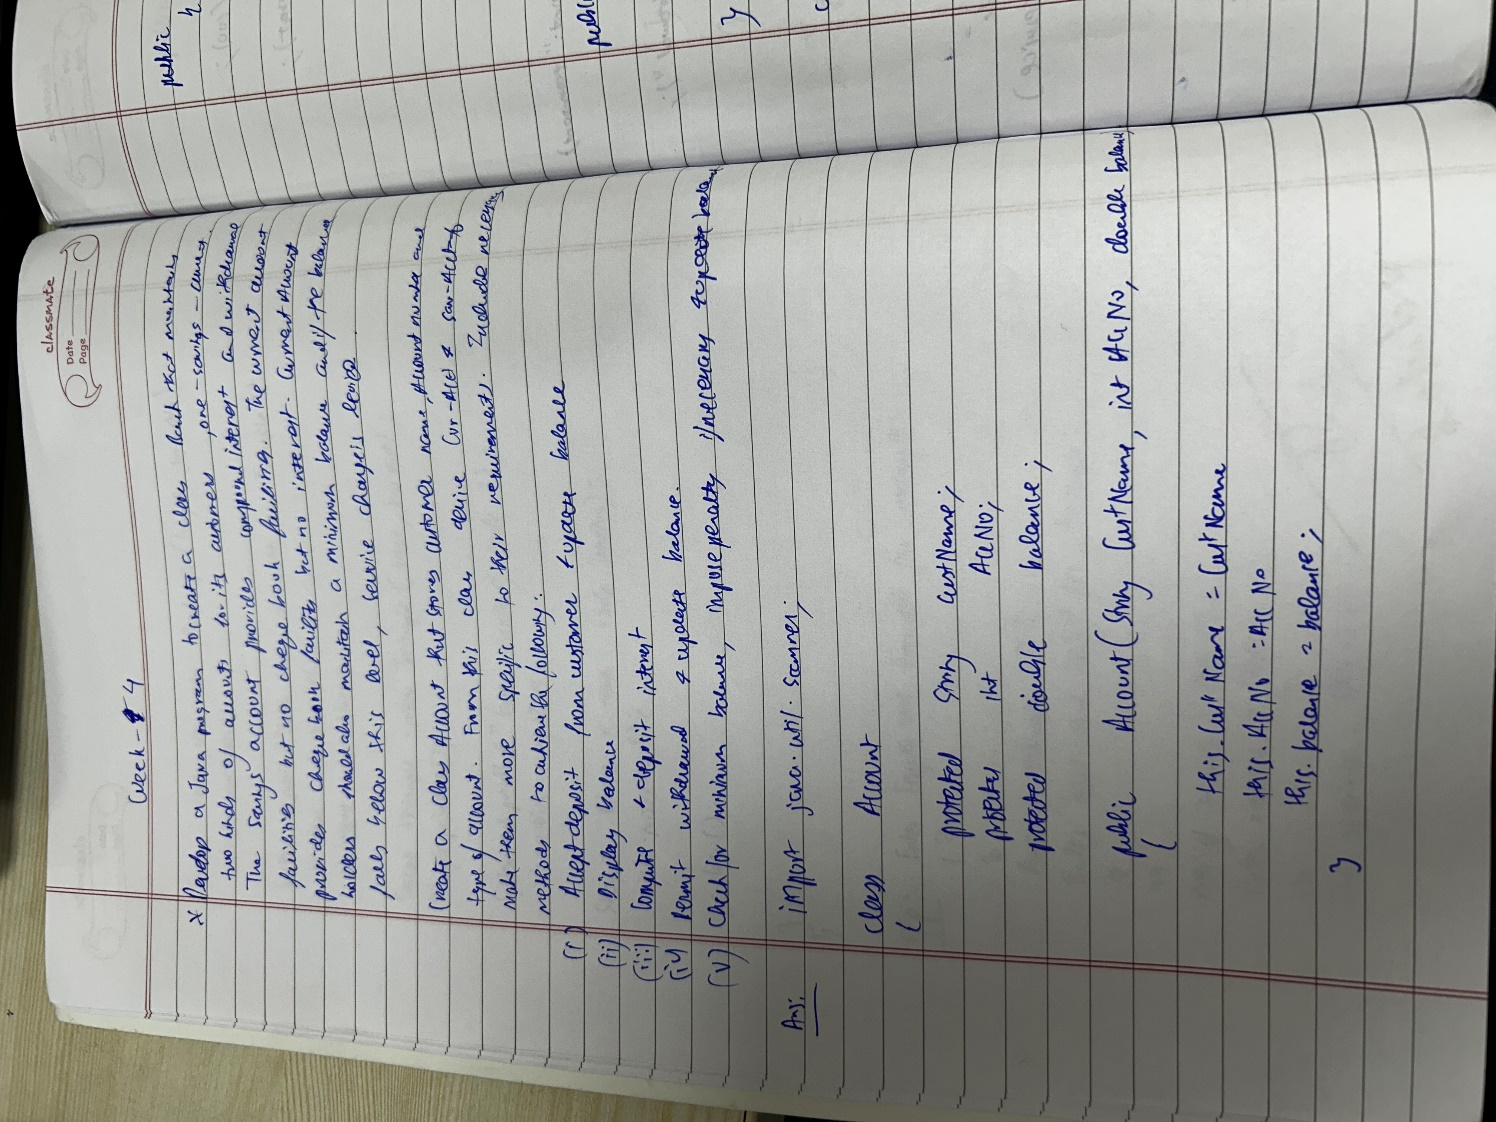 classmate
Date
Page
Week - 4
* Develop a Java program to create a class Bank that maintains
two kinds of account for its customers, one - savings - current.
The savings account provides compound interest and withdrawal
facilities but no cheque book facilities. The current account
provides cheque book facility but no interest. Current Account
holders should also maintain a minimum balance and if the balance
falls below this level, service charge is levied.
Create a class Account that stores customer name, Account number and
type of account. From this class derive Cur-Acct & Sav-Acct to
make them more specific to their requirements. Include necessary
methods to achieve the following:
(i) Accept deposit from customer & update balance
(ii) Display balance
(iii) Compute & deposit interest
(iv) Permit withdrawal & update balance.
(v) Check for minimum balance, impose penalty if necessary & update balance
Ans: import java.util.scanner;
class Account
{
protected String custName;
protected int AccNo;
protected double balance;
public Account (String CustName, int AccNo, double balance
{
this.CustName = CustName
this.AccNo = Acc No
this.balance = balance;
}
public
public
}